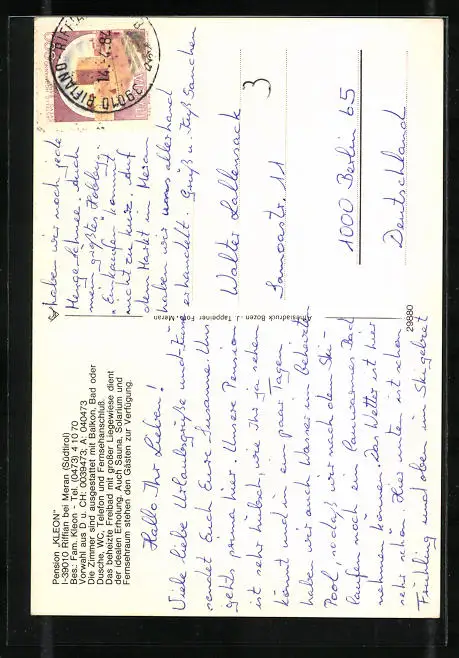 Pension „KLEON“
I-39010 Riffian bei Meran (Südtirol)
Bes.: Fam. Kleon - Tel. (0473) 4 10 70
Vorwahl aus D u. CH: 0039473; A: 040473
Die Zimmer sind ausgestattet mit Balkon, Bad oder
Dusche, WC, Telefon und Fernsehanschluß.
Das beheizte Freibad mit großer Liegewiese dient
der idealen Erholung. Auch Sauna, Solarium und
Fernsehraum stehen den Gästen zur Verfügung.
Hallo Ihr Lieben!
Viele liebe Urlaubsgrüße
sendet Euch Eure Susanne. Uns
gehts prima hier. Unsere Pension
ist sehr hübsch, wie Ihr ja sehen
könnt und in ein paar Tagen
haben wir auch Wasser im beheizten
Pool, sodaß wir nach dem Ski-
laufen noch ein lauwarmes Bad
nehmen können. Das Wetter ist hier
sehr schön. Hier unten ist schon
Frühling und oben im Skigebiet
haben wir noch jede
Menge Schnee. Auch
mein größtes Hobby:
"Einkaufen" kommt
nicht zu kurz. Auf
dem Markt in Meran
haben wir uns allerhand
erhandelt. Gruß u. Kuß Sannchen
39010 RIFIANO RIFFIAN
14.4.82
ITALIA
Walter Lallensack
3
Samoastr. 11
1000 Berlin 65
Deutschland
Athesiadruck Bozen - J. Tappeiner Foto, Meran
29880